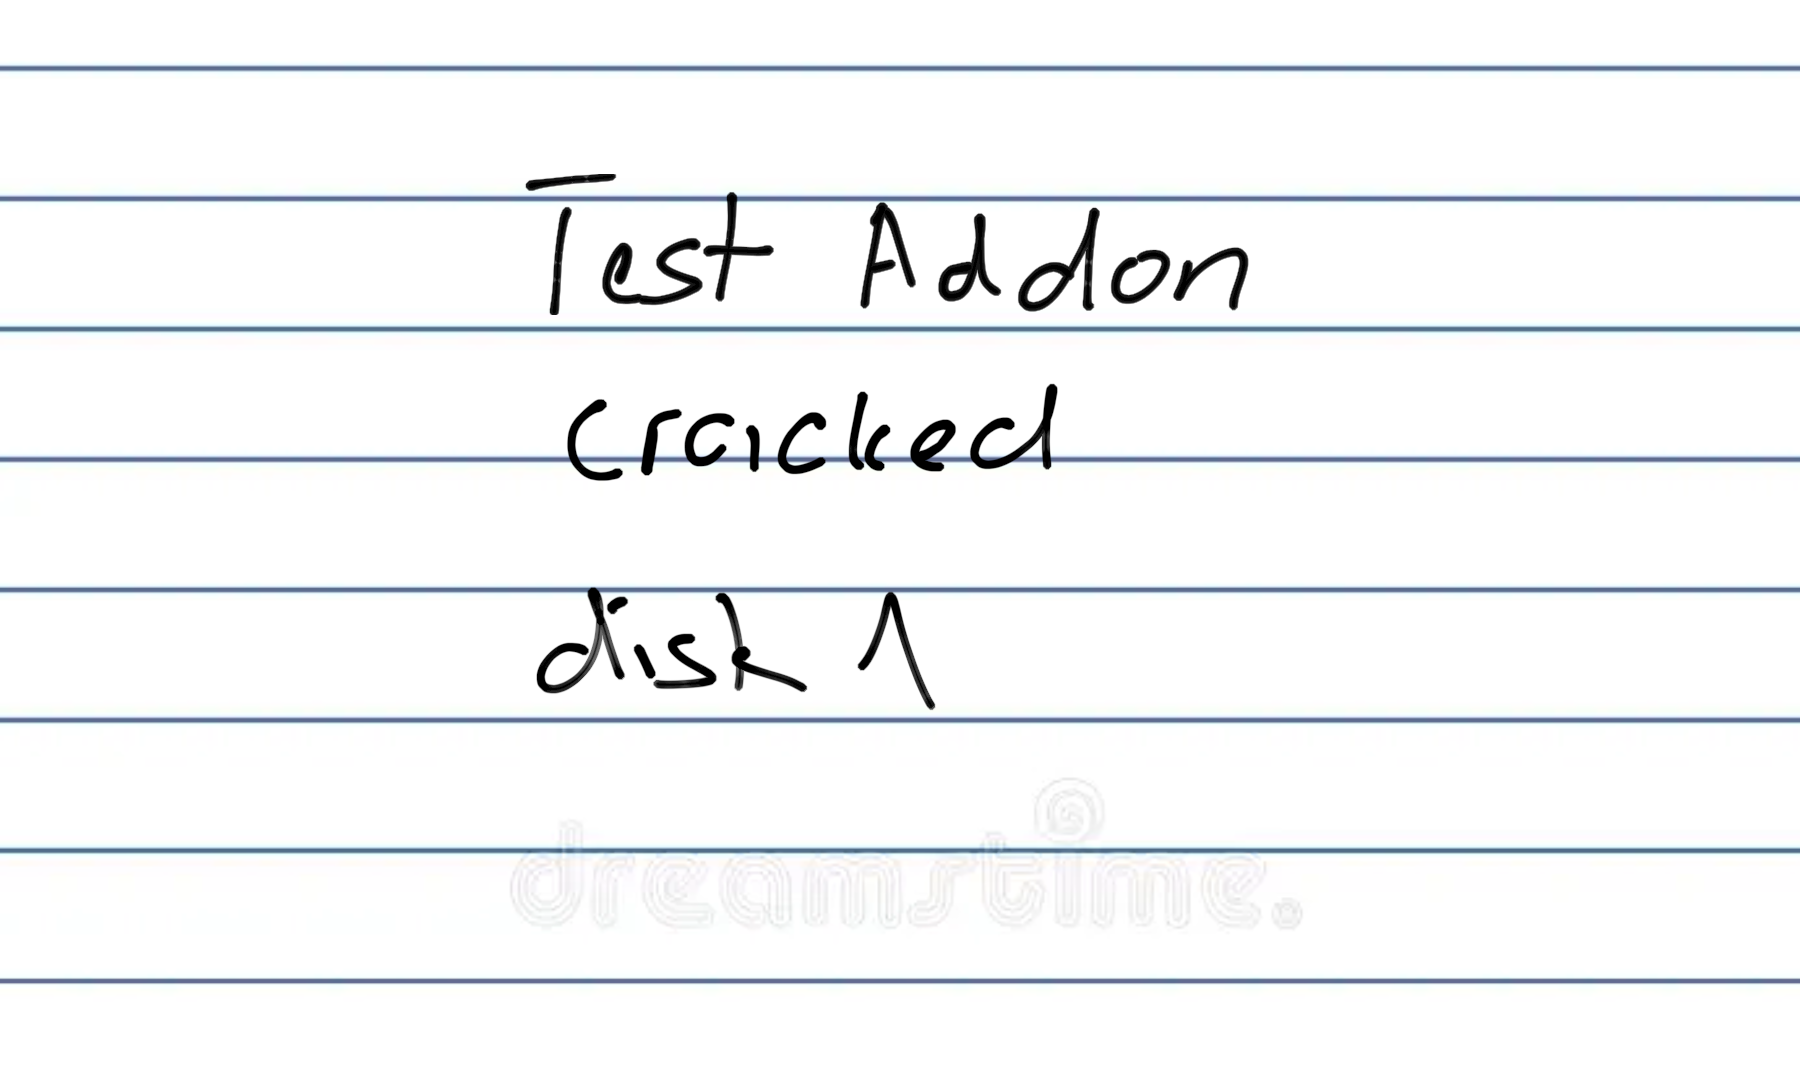 Test Addon
cracked
disk 1
dreamstime.